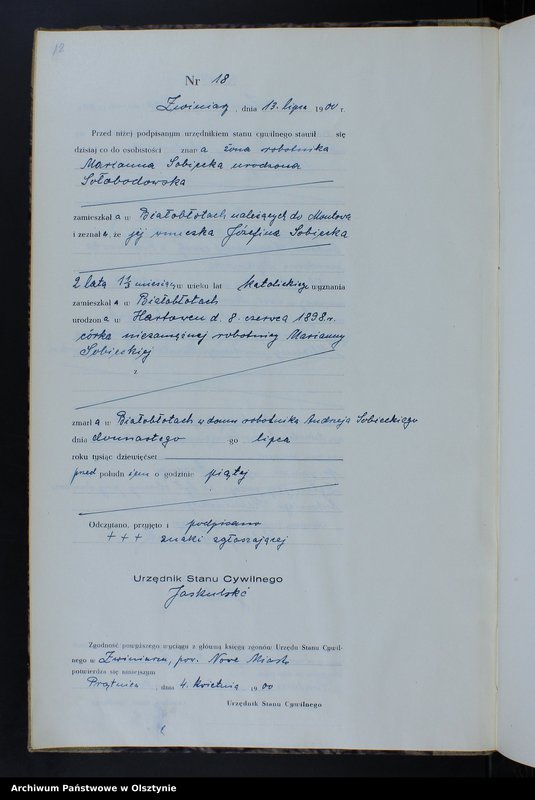 12
Nr 18
Zwiniarz, dnia 13. lipca 1900 r.
Przed niżej podpisanym urzędnikiem stanu cywilnego stawił się
dzisiaj co do osobistości znana żona robotnika
Marianna Sobiecka urodzona
Sołobodowska
zamieszkała w Białobłotach należących do Montowa
i zeznała, że jej wnuczka Józefina Sobiecka
2 lata 1 1/3 miesięcy w wieku lat katolickiego wyznania
zamieszkała w Białobłotach
urodzona w Hartowcu d. 8. czerwca 1898. r.
córka niezamężnej robotnicy Marianny
Sobieckiej
z
zmarła w Białobłotach w domu robotnika Andrzeja Sobieckiego
dnia dwunastego go lipca
roku tysiąc dziewięćset
przed połudn iem o godzinie piątej
Odczytano, przyjęto i podpisano
+ + + znaki zgłaszającej
Urzędnik Stanu Cywilnego
Jaskulski
Zgodność powyższego wyciągu z główną księgą zgonów Urzędu Stanu Cywil-
nego w Zwiniarzu, pow. Nowe Miasto
potwierdza się niniejszym
Prątnica, dnia 4. kwietnia 1900
Urzędnik Stanu Cywilnego
Archiwum Państwowe w Olsztynie